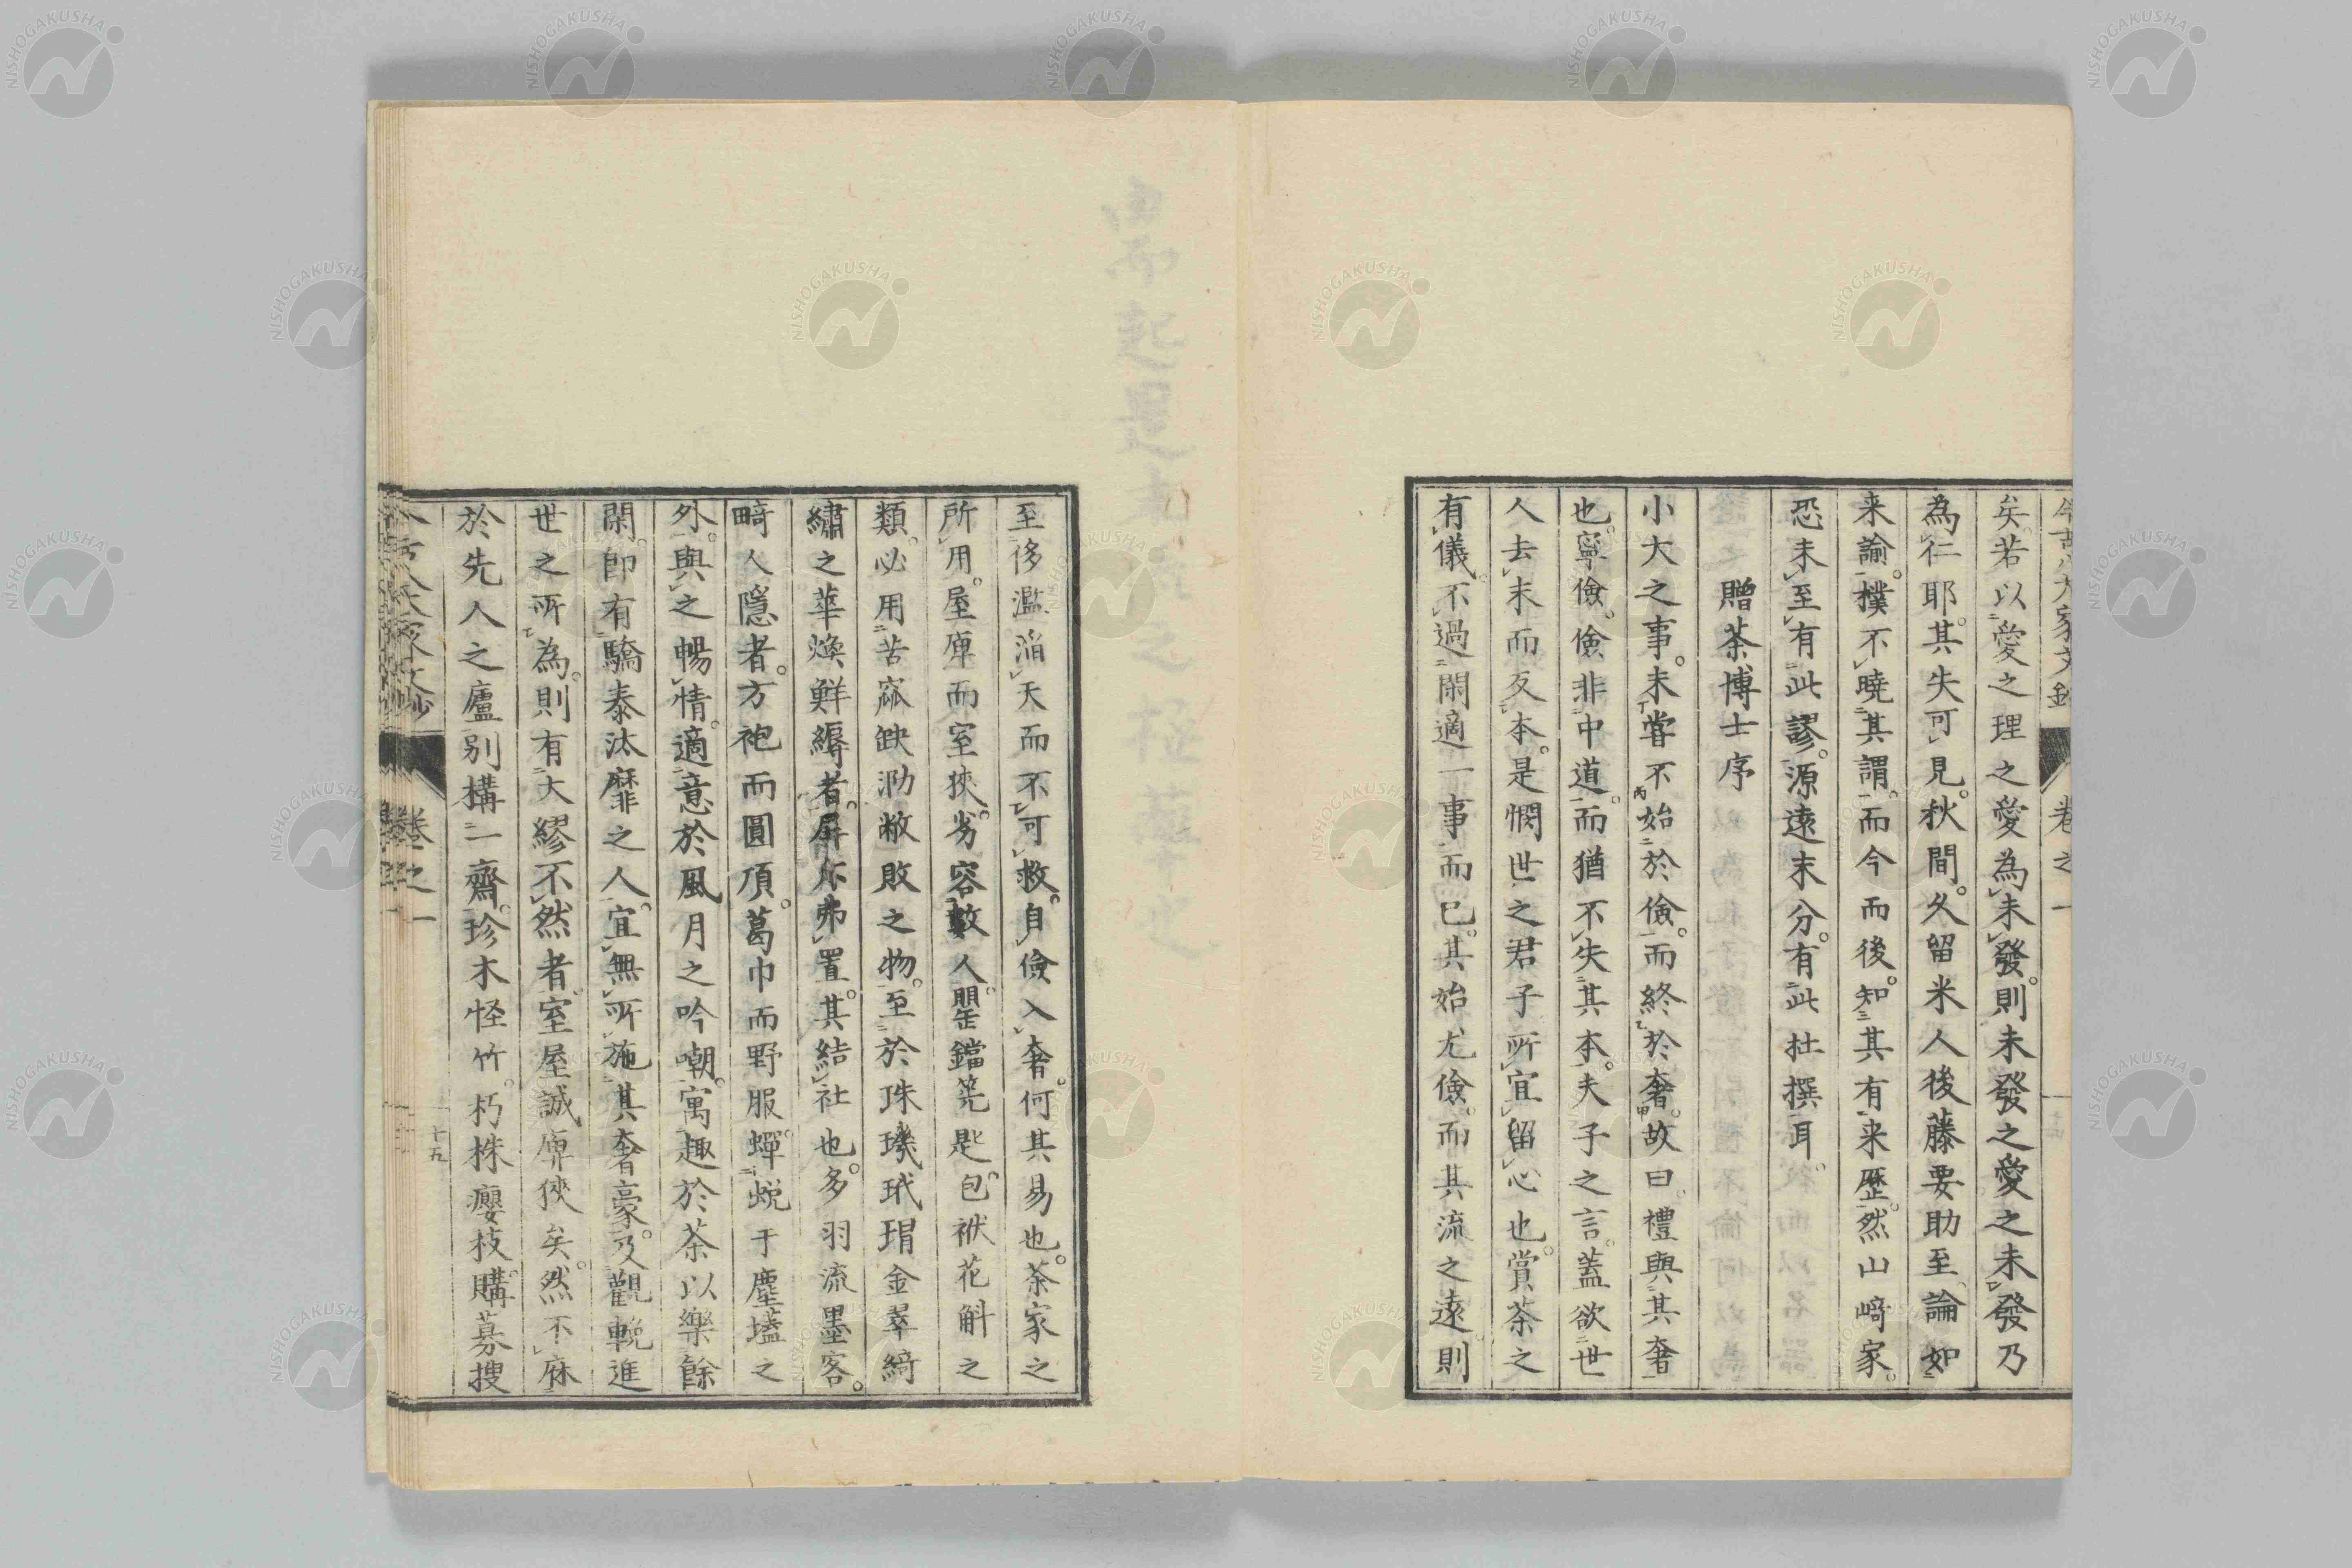 矣。若以愛之理之愛為未發。則未發之愛之未發乃
為仁耶。其失可見。秋間。久留米人後藤要助至。論如
来諭。撲不曉其謂。而今而後。知其有来歷。然山﨑家。
恐未至有此謬。源遠末分。有此杜撰耳。
贈茶博士序
小大之事。未嘗不始於儉。而終於奢。故曰。禮與其奢
也。寧儉。儉非中道。而猶不失其本。夫子之言。蓋欲世
人去末而反本。是憫世之君子所宜留心也。賞茶之
有儀。不過閑適一事。而已。其始尤儉。而其流之遠則
至侈濫滔天而不可救。自儉入奢。何其易也。茶家之
所用。屋庳而室狹。劣容數人。罌鐺筅匙。包袱花斛之
類。必用苦窳缺泐敝敗之物。至於珠璣玳瑁金翠綺
繡之華煥鮮縟者。屏斥弗置。其結社也。多羽流墨客。
畸人隱者。方袍而圓頂。葛巾而野服。蟬蛻于塵壒之
外。與之暢情。適意於風月之吟嘲。寓趣於茶以樂餘
閑。卽有驕泰汰靡之人。宜無所施其奢豪。及觀輓進
世之所為。則有大繆不然者。室屋誠庳俠矣。然不麻
於先人之廬别構一齋。珍木怪竹。朽株癭枝。購募搜
卷之一
十五